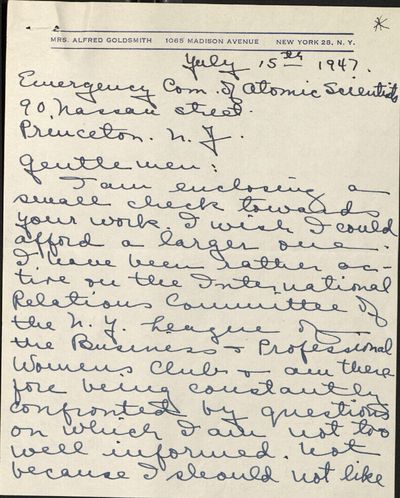 *
MRS. ALFRED GOLDSMITH 1065 MADISON AVENUE NEW YORK 28, N. Y.
July 15th 1947.
Emergency Com. of Atomic Scientists
90, Nassau street.
Princeton. N. J.
Gentlemen:
I am enclosing a
small check towards
your work, I wish I could
afford a larger one.
I have been rather ac-
tive on the International
Relations Committee of
the N. Y. League of
the Business + Professional
Womens Clubs + am there
fore being constantly
confronted by questions
on which I am not too
well informed. Not
because I should not like